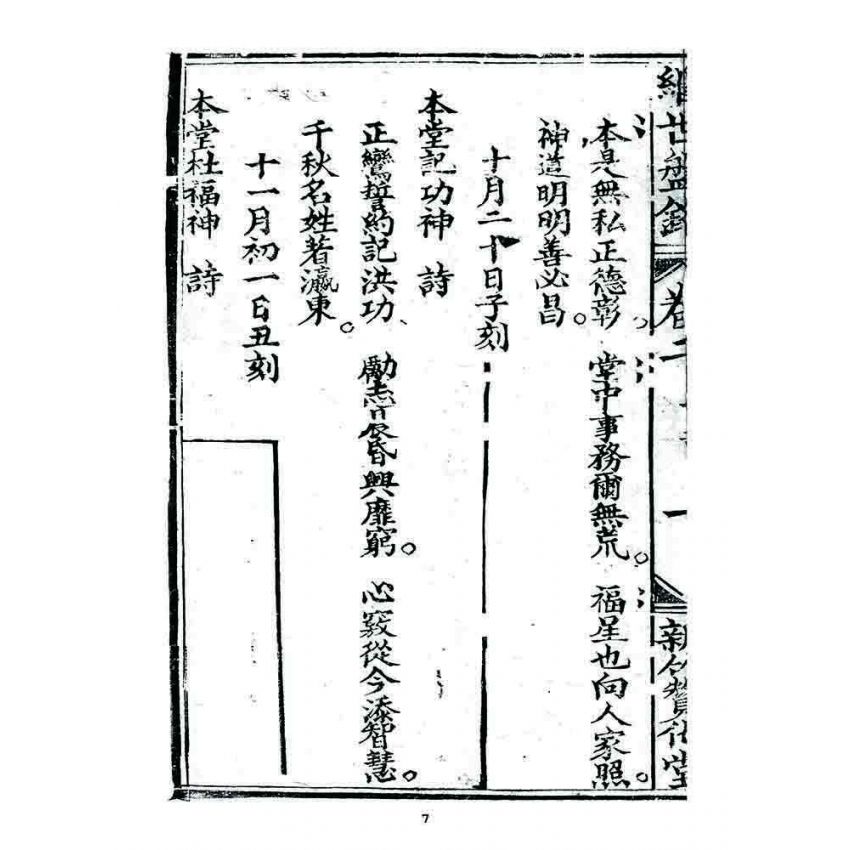 維世盤銘 卷二 一 新竹贊化堂
本是無私正德彰。堂中事務爾無荒。福星也向人家照。
神道明明善必昌。
十月二十日子刻
本堂記功神 詩
正鸞誓約記洪功、勵志夤昏興靡窮。心竅從今添智慧。
千秋名姓著瀛東。
十一月初一日丑刻
本堂杜福神 詩
7